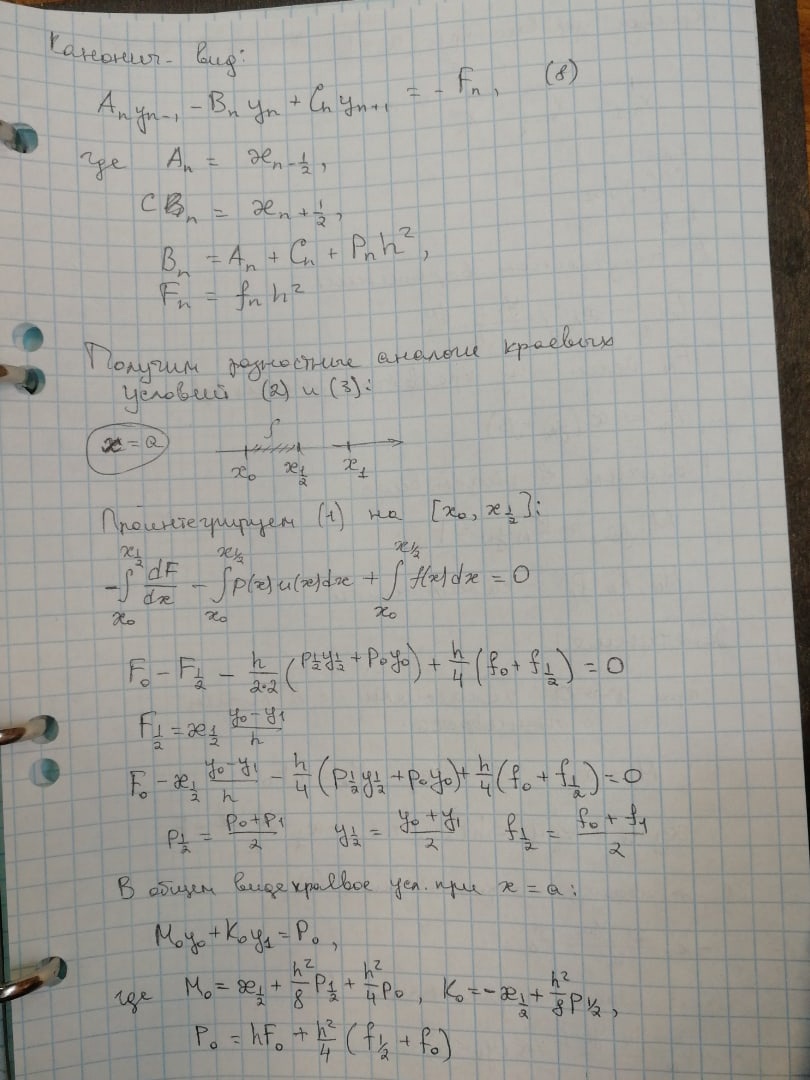 Канонич- вид:
Aₙyₙ₋₁ - Bₙyₙ + Cₙyₙ₊₁ = - Fₙ, (8)
где Aₙ = æₙ₋½,
Cₙ = æₙ₊½,
Bₙ = Aₙ + Cₙ + Pₙh²,
Fₙ = fₙh²
Получим разностные аналоги краевых
условий (2) и (3):
x = a
x₀ x½ x₁
Проинтегрируем (1) на [x₀, x½]:
-∫_{x₀}^{x½} dF/dx - ∫_{x₀}^{x½} p(x)u(x)dx + ∫_{x₀}^{x½} f(x)dx = 0
F₀ - F½ - h/(2·2) (p½y½ + p₀y₀) + h/4 (f₀ + f½) = 0
F½ = æ½ (y₀ - y₁)/h
F₀ - æ½ (y₀ - y₁)/h - h/4 (p½y½ + p₀y₀) + h/4 (f₀ + f½) = 0
p½ = (p₀ + p₁)/2 y½ = (y₀ + y₁)/2 f½ = (f₀ + f₁)/2
В общем виде краевое усл. при x = a:
M₀y₀ + K₀y₁ = P₀,
где M₀ = æ½ + h²/8 p½ + h²/4 p₀, K₀ = -æ½ + h²/8 p½,
P₀ = hF₀ + h²/4 (f½ + f₀)